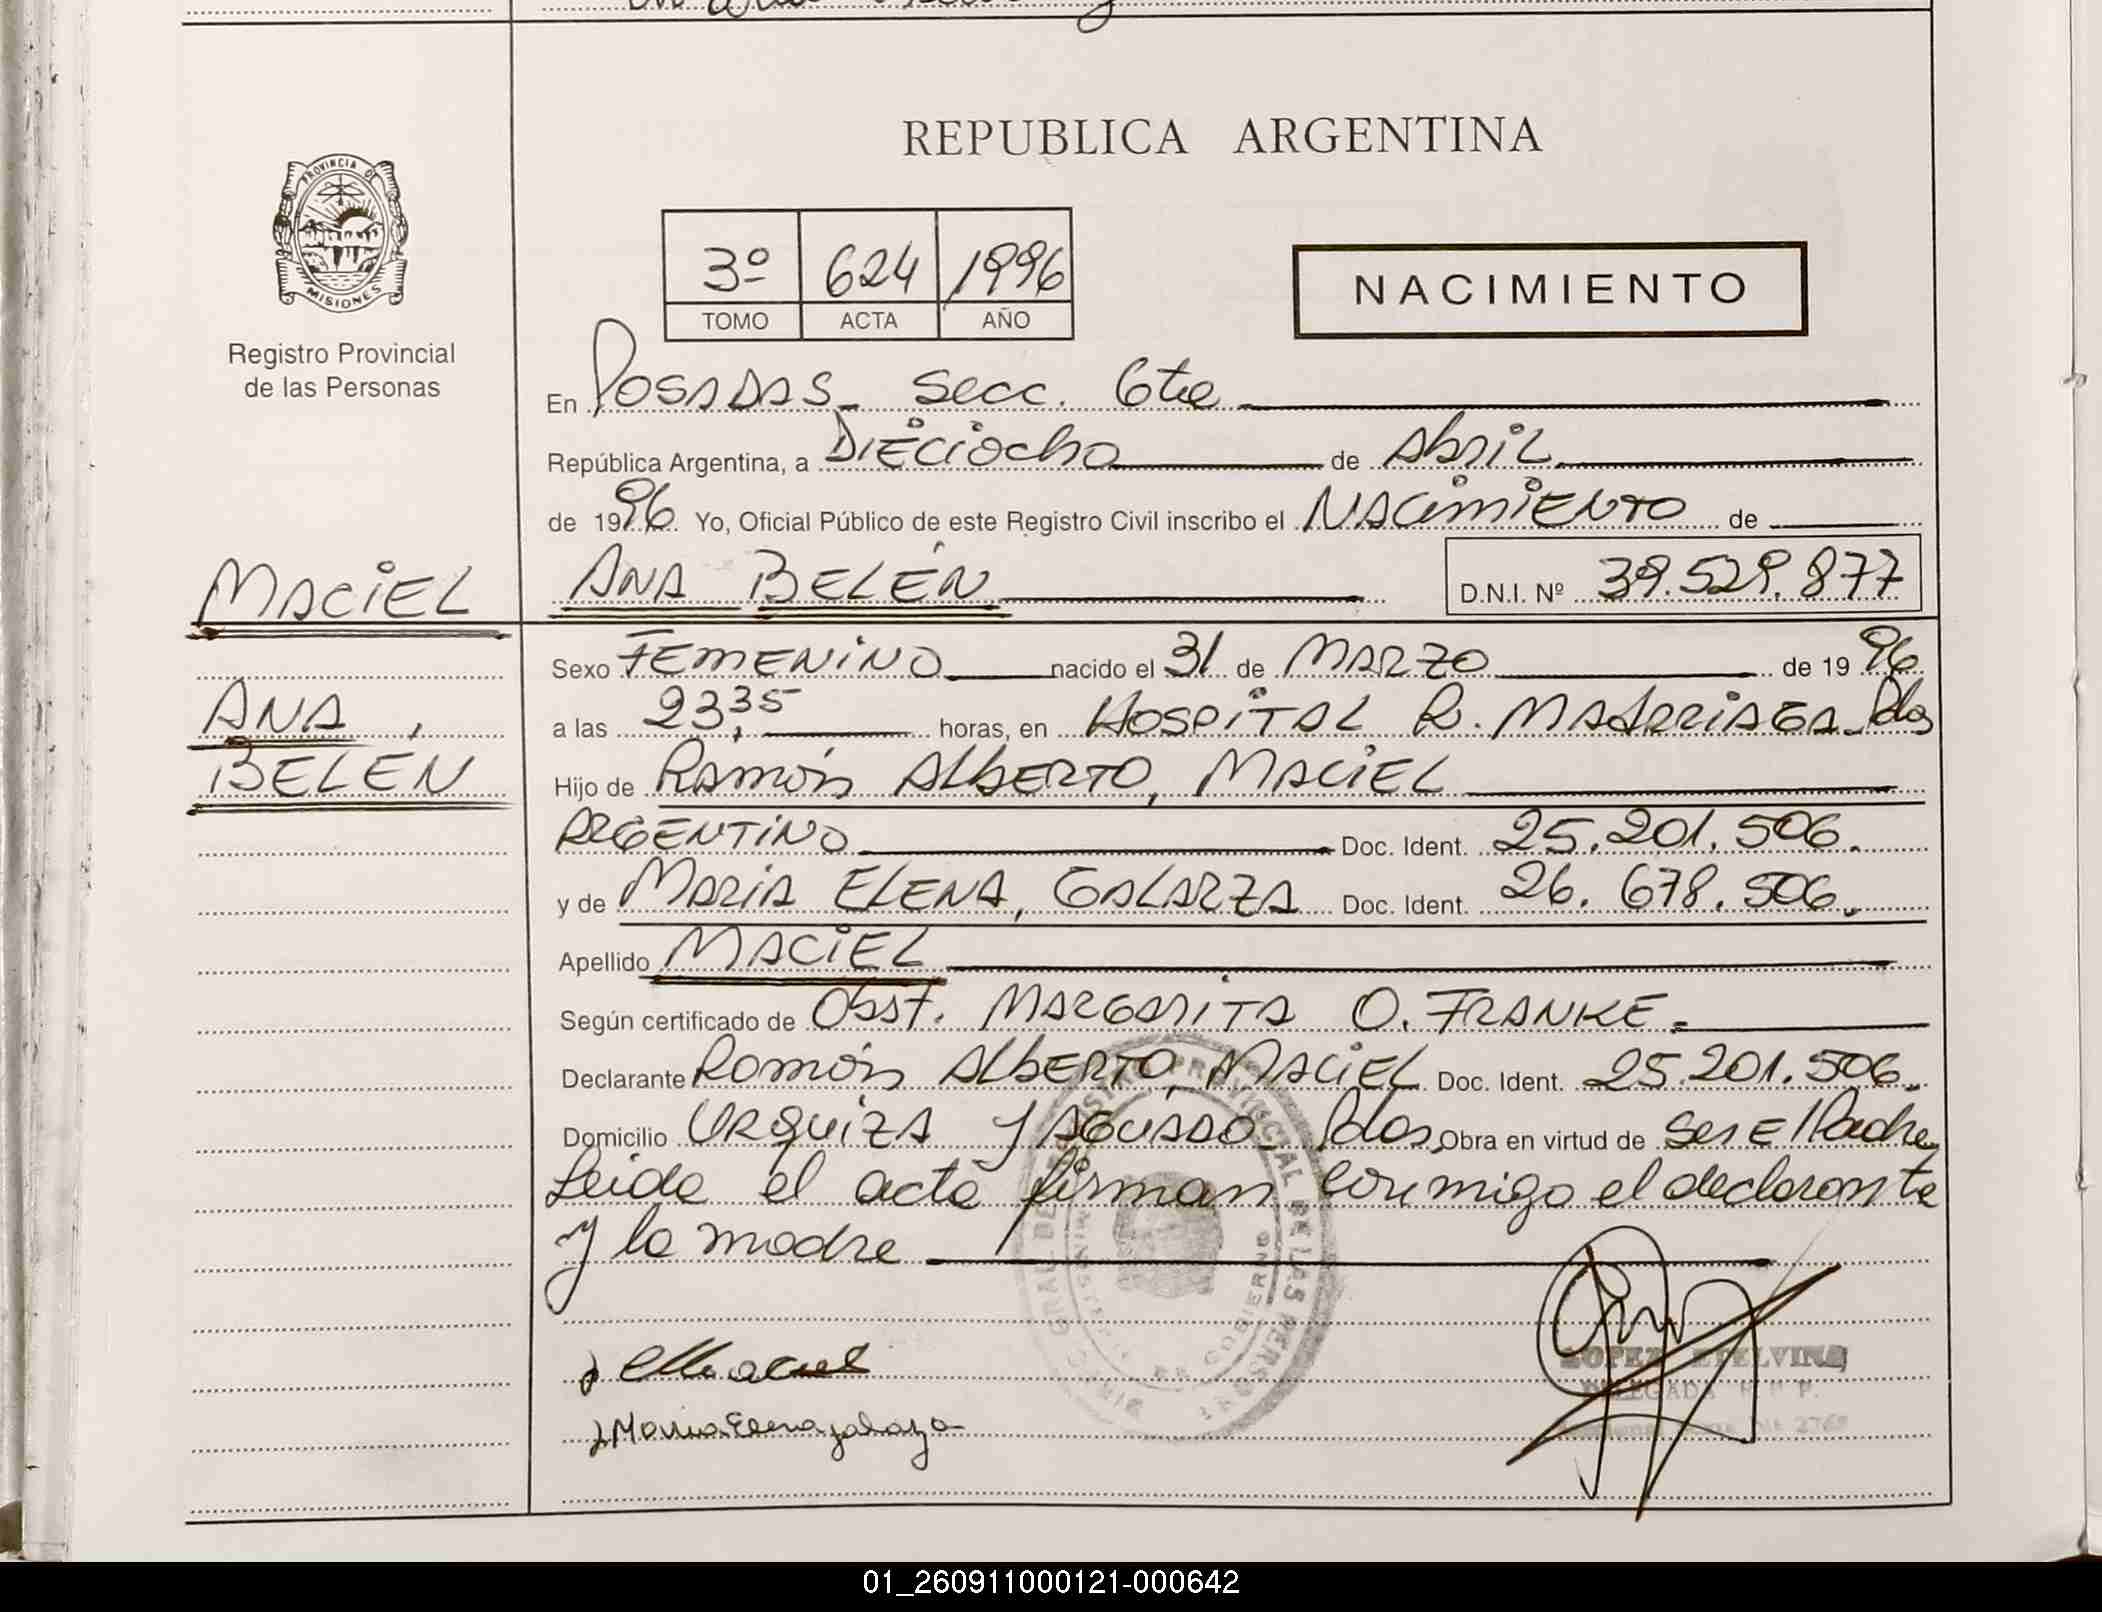 REPUBLICA ARGENTINA
PROVINCIA DE
MISIONES
Registro Provincial
de las Personas
3º 624 1996
TOMO ACTA AÑO
NACIMIENTO
En POSADAS - Secc. 6ta
República Argentina, a DIECIOCHO de Abril
de 1996 Yo, Oficial Público de este Registro Civil inscribo el NACIMIENTO de
MACIEL ANA BELÉN D.N.I. Nº 39.529.877
Sexo FEMENINO nacido el 31 de MARZO de 1996
ANA a las 23,35 horas, en HOSPITAL R. MADARRIAGA - Pdas
BELÉN Hijo de Ramón ALBERTO, MACIEL
ARGENTINO Doc. Ident. 25.201.506.
y de MARIA ELENA, GALARZA Doc. Ident. 26.678.506.
Apellido MACIEL
Según certificado de Obst. MARGARITA O. FRANKE.
Declarante Ramón ALBERTO, MACIEL Doc. Ident. 25.201.506.
Domicilio URQUIZA y AGUADO - Pdas, Obra en virtud de ser El Padre
Leida el acta firman conmigo el declarante
y la madre
Maria Elena galarza
LOPEZ ETELVINA
DELEGADA R. P. P.
01_260911000121-000642